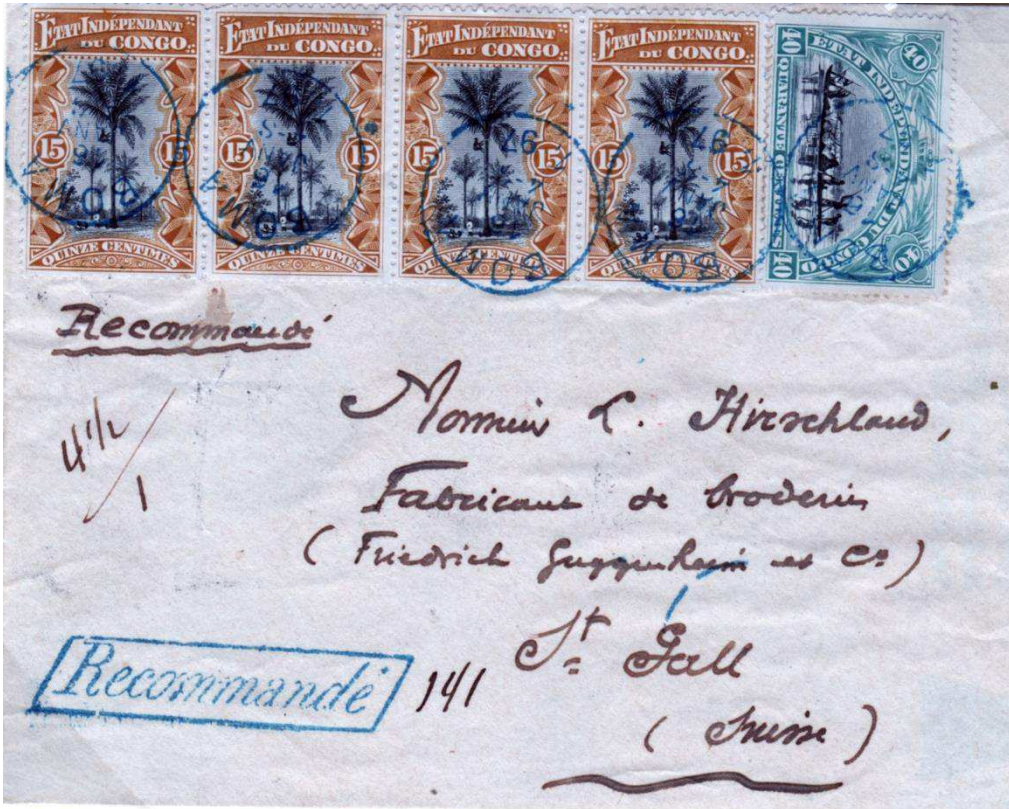 ETAT INDÉPENDANT
DU CONGO
15 15
QUINZE CENTIMES
ETAT INDÉPENDANT
DU CONGO
15 15
QUINZE CENTIMES
ETAT INDÉPENDANT
DU CONGO
15 15
QUINZE CENTIMES
ETAT INDÉPENDANT
DU CONGO
15 15
QUINZE CENTIMES
40 40
ETAT INDÉPENDANT DU CONGO
QUARANTE CENTIMES
40 40
BOMA
BOMA
BOMA
97
BOMA
97
Recommandé
4 1/2
1
Monsieur L. Hirschland,
Fabricant de broderies
(Friedrich Guggenheim et Co)
St Gall
Recommandé 141
(Suisse)